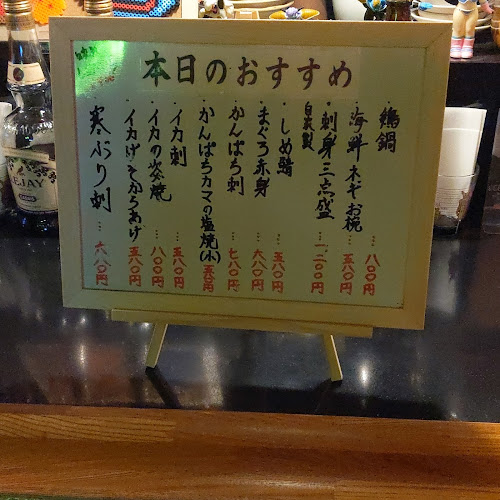 本日のおすすめ
・鶏鍋 … 八〇〇円
・海鮮ネギお椀 … 五八〇円
・刺身三点盛 … 一、二〇〇円
自家製
・しめ鯖 … 五八〇円
・まぐろ赤身 … 六八〇円
・かんぱち刺 … 七八〇円
・かんぱちカマの塩焼(小) 五八〇円
・イカ刺 … 五八〇円
・イカの姿焼 … 八〇〇円
・イカげそからあげ … 五八〇円
寒ぶり刺 … 六八〇円
EJAY